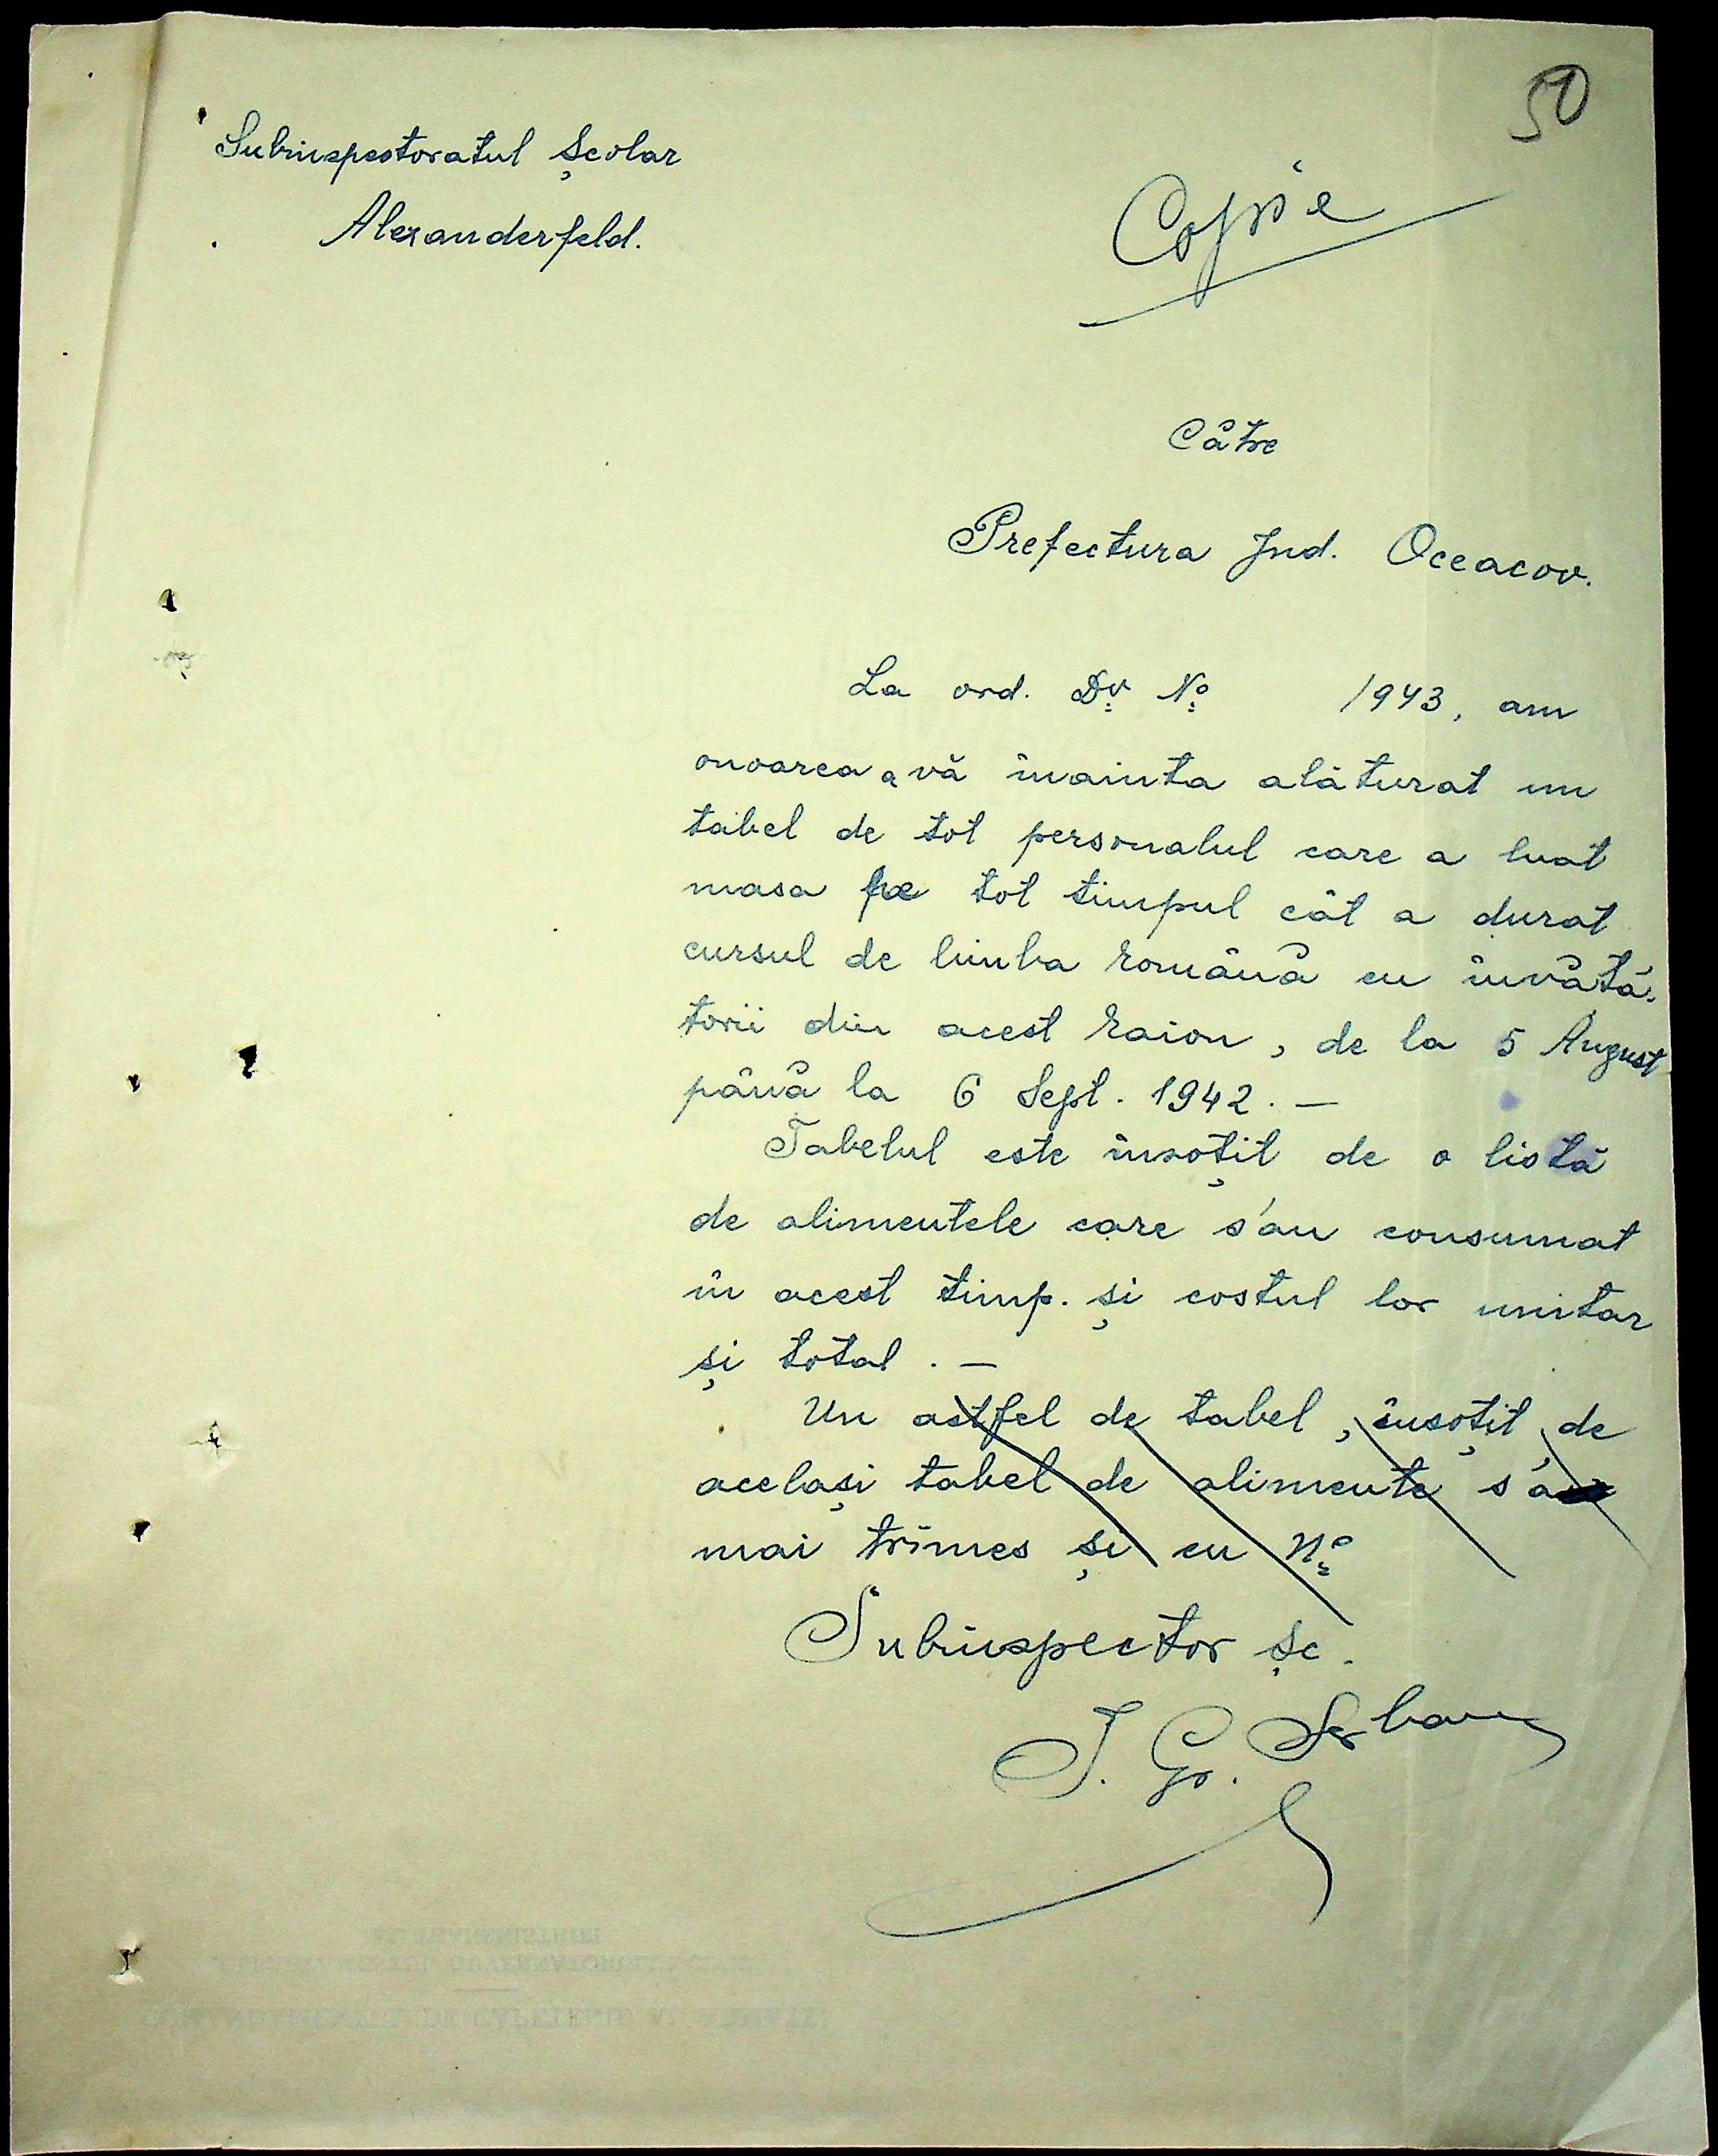 50
Subinspectoratul Școlar
Alexanderfeld.
Copie
Către
Prefectura Jud. Oceacov.
La ord. Dv. No. 1943, am
onoarea a vă înainta alăturat un
tabel de tot personalul care a luat
masa pe tot timpul cât a durat
cursul de limba română cu învăță-
torii din acest raion, de la 5 August
până la 6 Sept. 1942. —
Tabelul este însoțit de o listă
de alimentele care s'au consumat
în acest timp. și costul lor unitar
și total. —
Un astfel de tabel, însoțit, de
același tabel de alimente s'a
mai trimes și cu No.
Subinspector șc.
I. Gr. Șerban